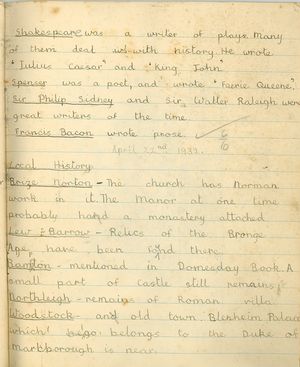 Shakespeare was a writer of plays. Many
of them deal with with history. He wrote
"Julius Caesar" and "King John".
Spenser was a poet, and wrote "Faerie Queene".
Sir Philip Sidney and Sir Walter Raleigh were
great writers of the time.
Francis Bacon wrote prose. 6/10
April 22nd 1932.
Local History
Brize Norton - The church has Norman
work in it. The Manor at one time
probably had a monastery attached
Lew Barrow - Relics of the Bronze
Age have been found there.
Bampton - mentioned in Domesday Book. A
small part of Castle still remains.
Northleigh - remains of Roman villa
Woodstock - and old town. Blenheim Palace
which belongs to the Duke of
Marlborough is near.